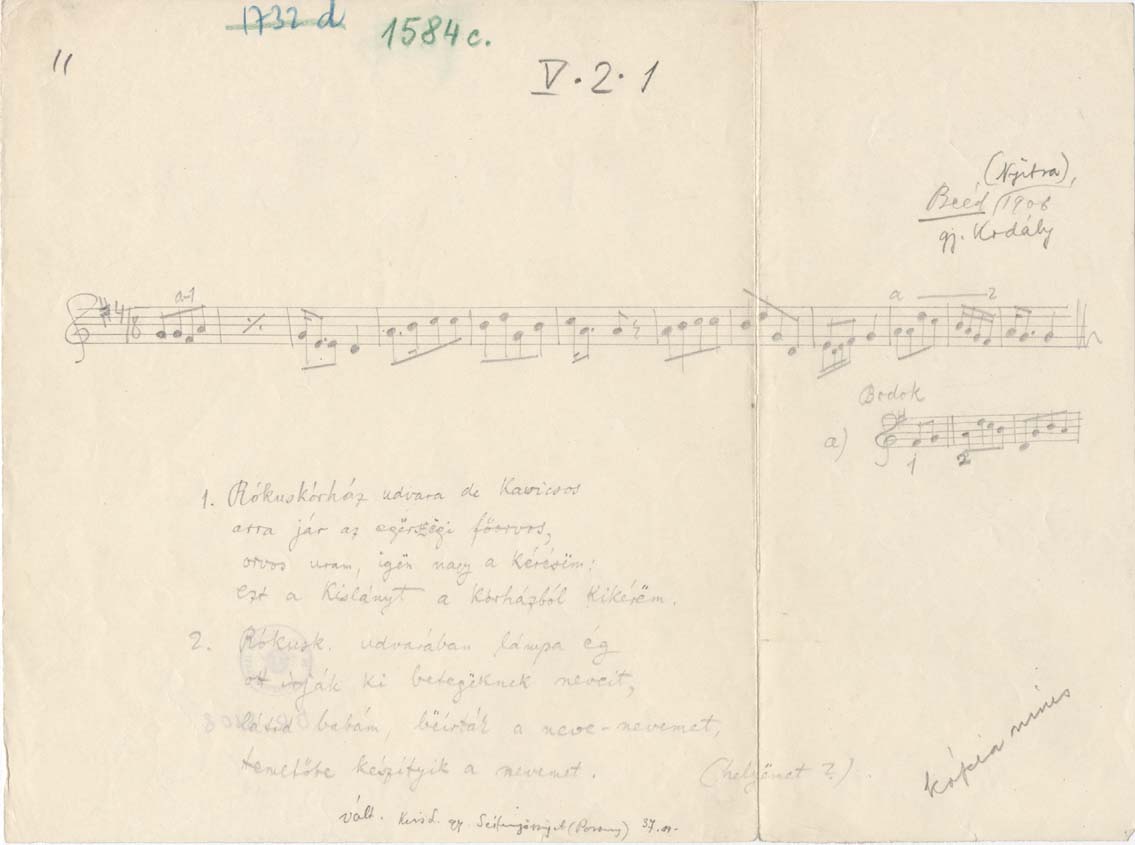 1732 d
1584 c.
11
V. 2. 1
(Nyitra),
Beéd 1906
gj. Kodály
a-1
a 2
Bodok
a)
1 2
1. Rókuskórház udvara de kavicsos
arra jár az egërszégi főorvos,
orvos uram, igën nagy a kérésëm:
ezt a kislányt a kórházból kikérëm.
2. Rókusk. udvarában lámpa ég
ott irják ki betegëknek neveit,
látod babám, bëirták a neve-nevemet,
temetőbe készityik a nevemet. (helyënet?).
kópia nincs
vált.